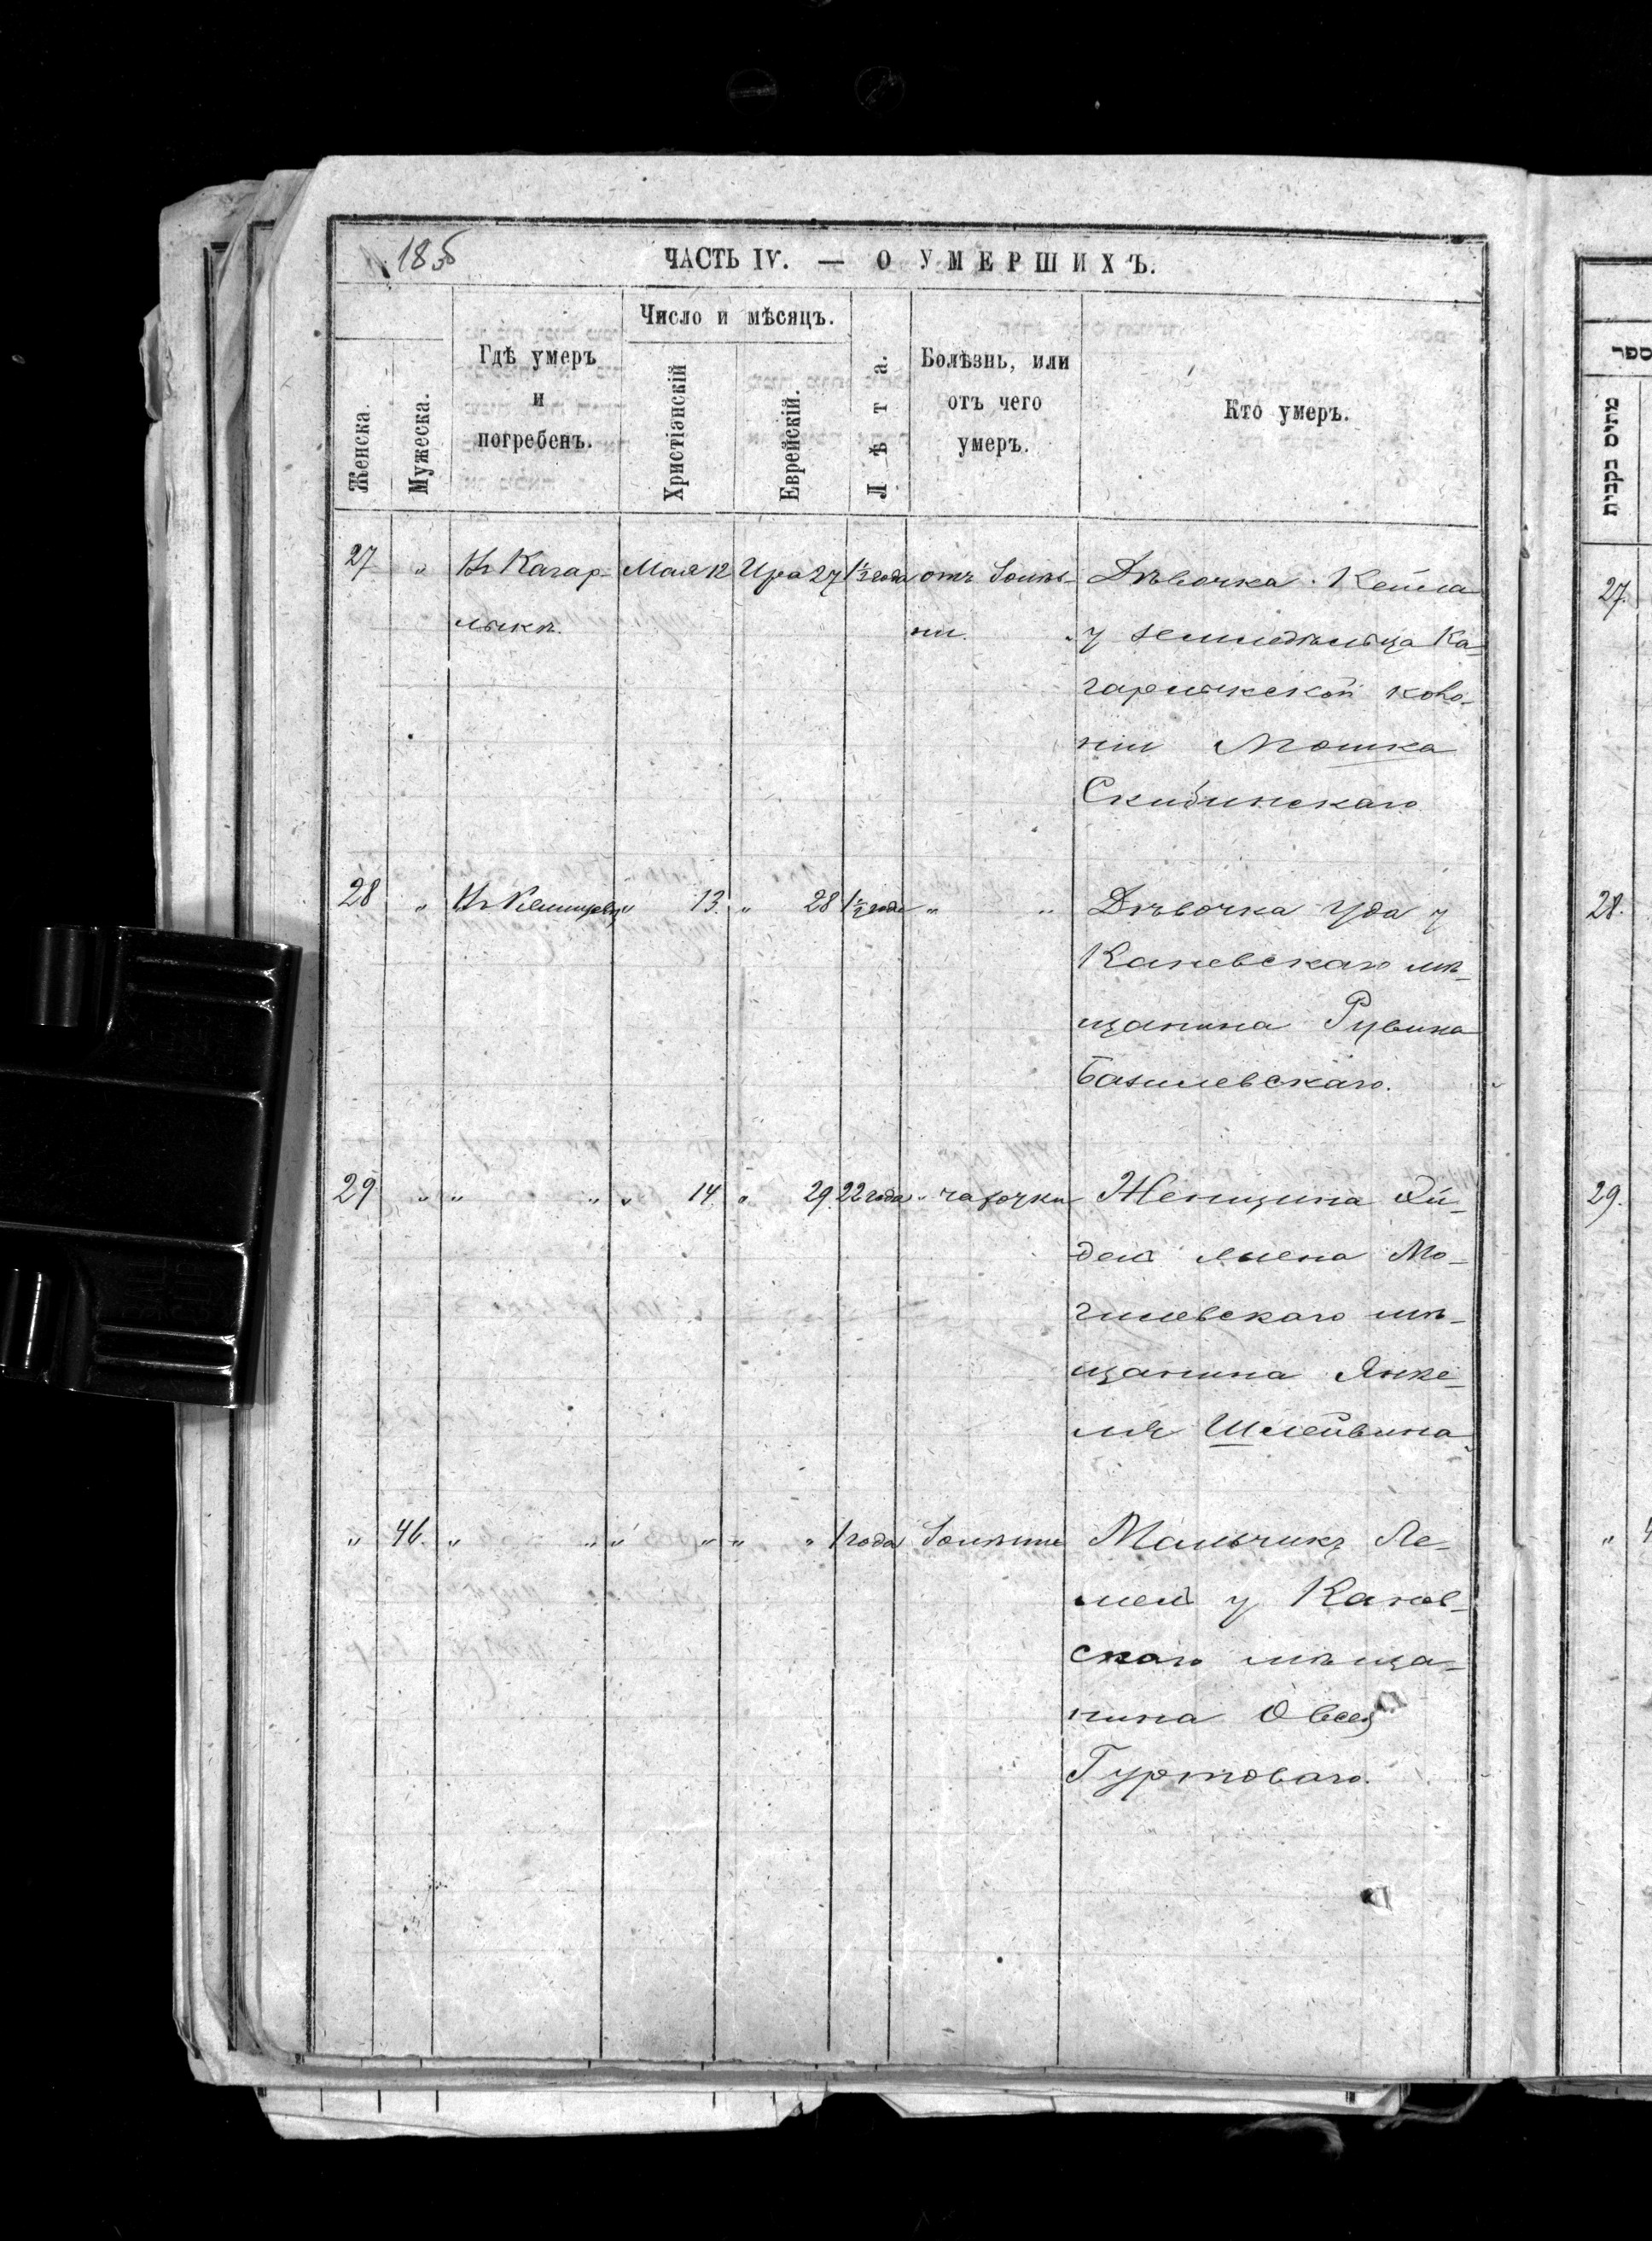 ЧАСТЬ IV. — О УМЕРШИХЪ.
Женска.
Мужеска.
Гдѣ умеръ
и
погребенъ.
Число и мѣсяцъ.
Христіанскій
Еврейскій.
Лѣта.
Болѣзнь, или
отъ чего
умеръ.
Кто умеръ.
27 " Въ Кагар- Мая 12 Ира 27 1½ года отъ Болѣз- Дѣвочка Кейла
лыкѣ. ни. у земледѣльца Ка-
гарлыкской коло-
ніи Мошка
Скибинскаго
28 " 13. " 28 1½ года " " Дѣвочка Уда у
Каневскаго мѣ-
щанина Рувина
Базилевскаго.
29 " " " " 14. " 29. 22 года " чахотки Женщина Эй-
дель жена Мо-
гилевскаго мѣ-
щанина Янке-
ля Шлейвина
" 46. " " " " " " 1 года Болѣзни Мальчикъ Ле-
мель у Канев-
скаго мѣща-
нина Овсея
Гуртоваго.
ספר
מתים נקבות
27.
28.
29.
"